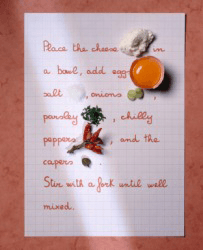 Place the cheese in
a bowl, add egg
salt , onions ,
parsley , chilly
peppers , and the
capers
Stir with a fork until well
mixed.